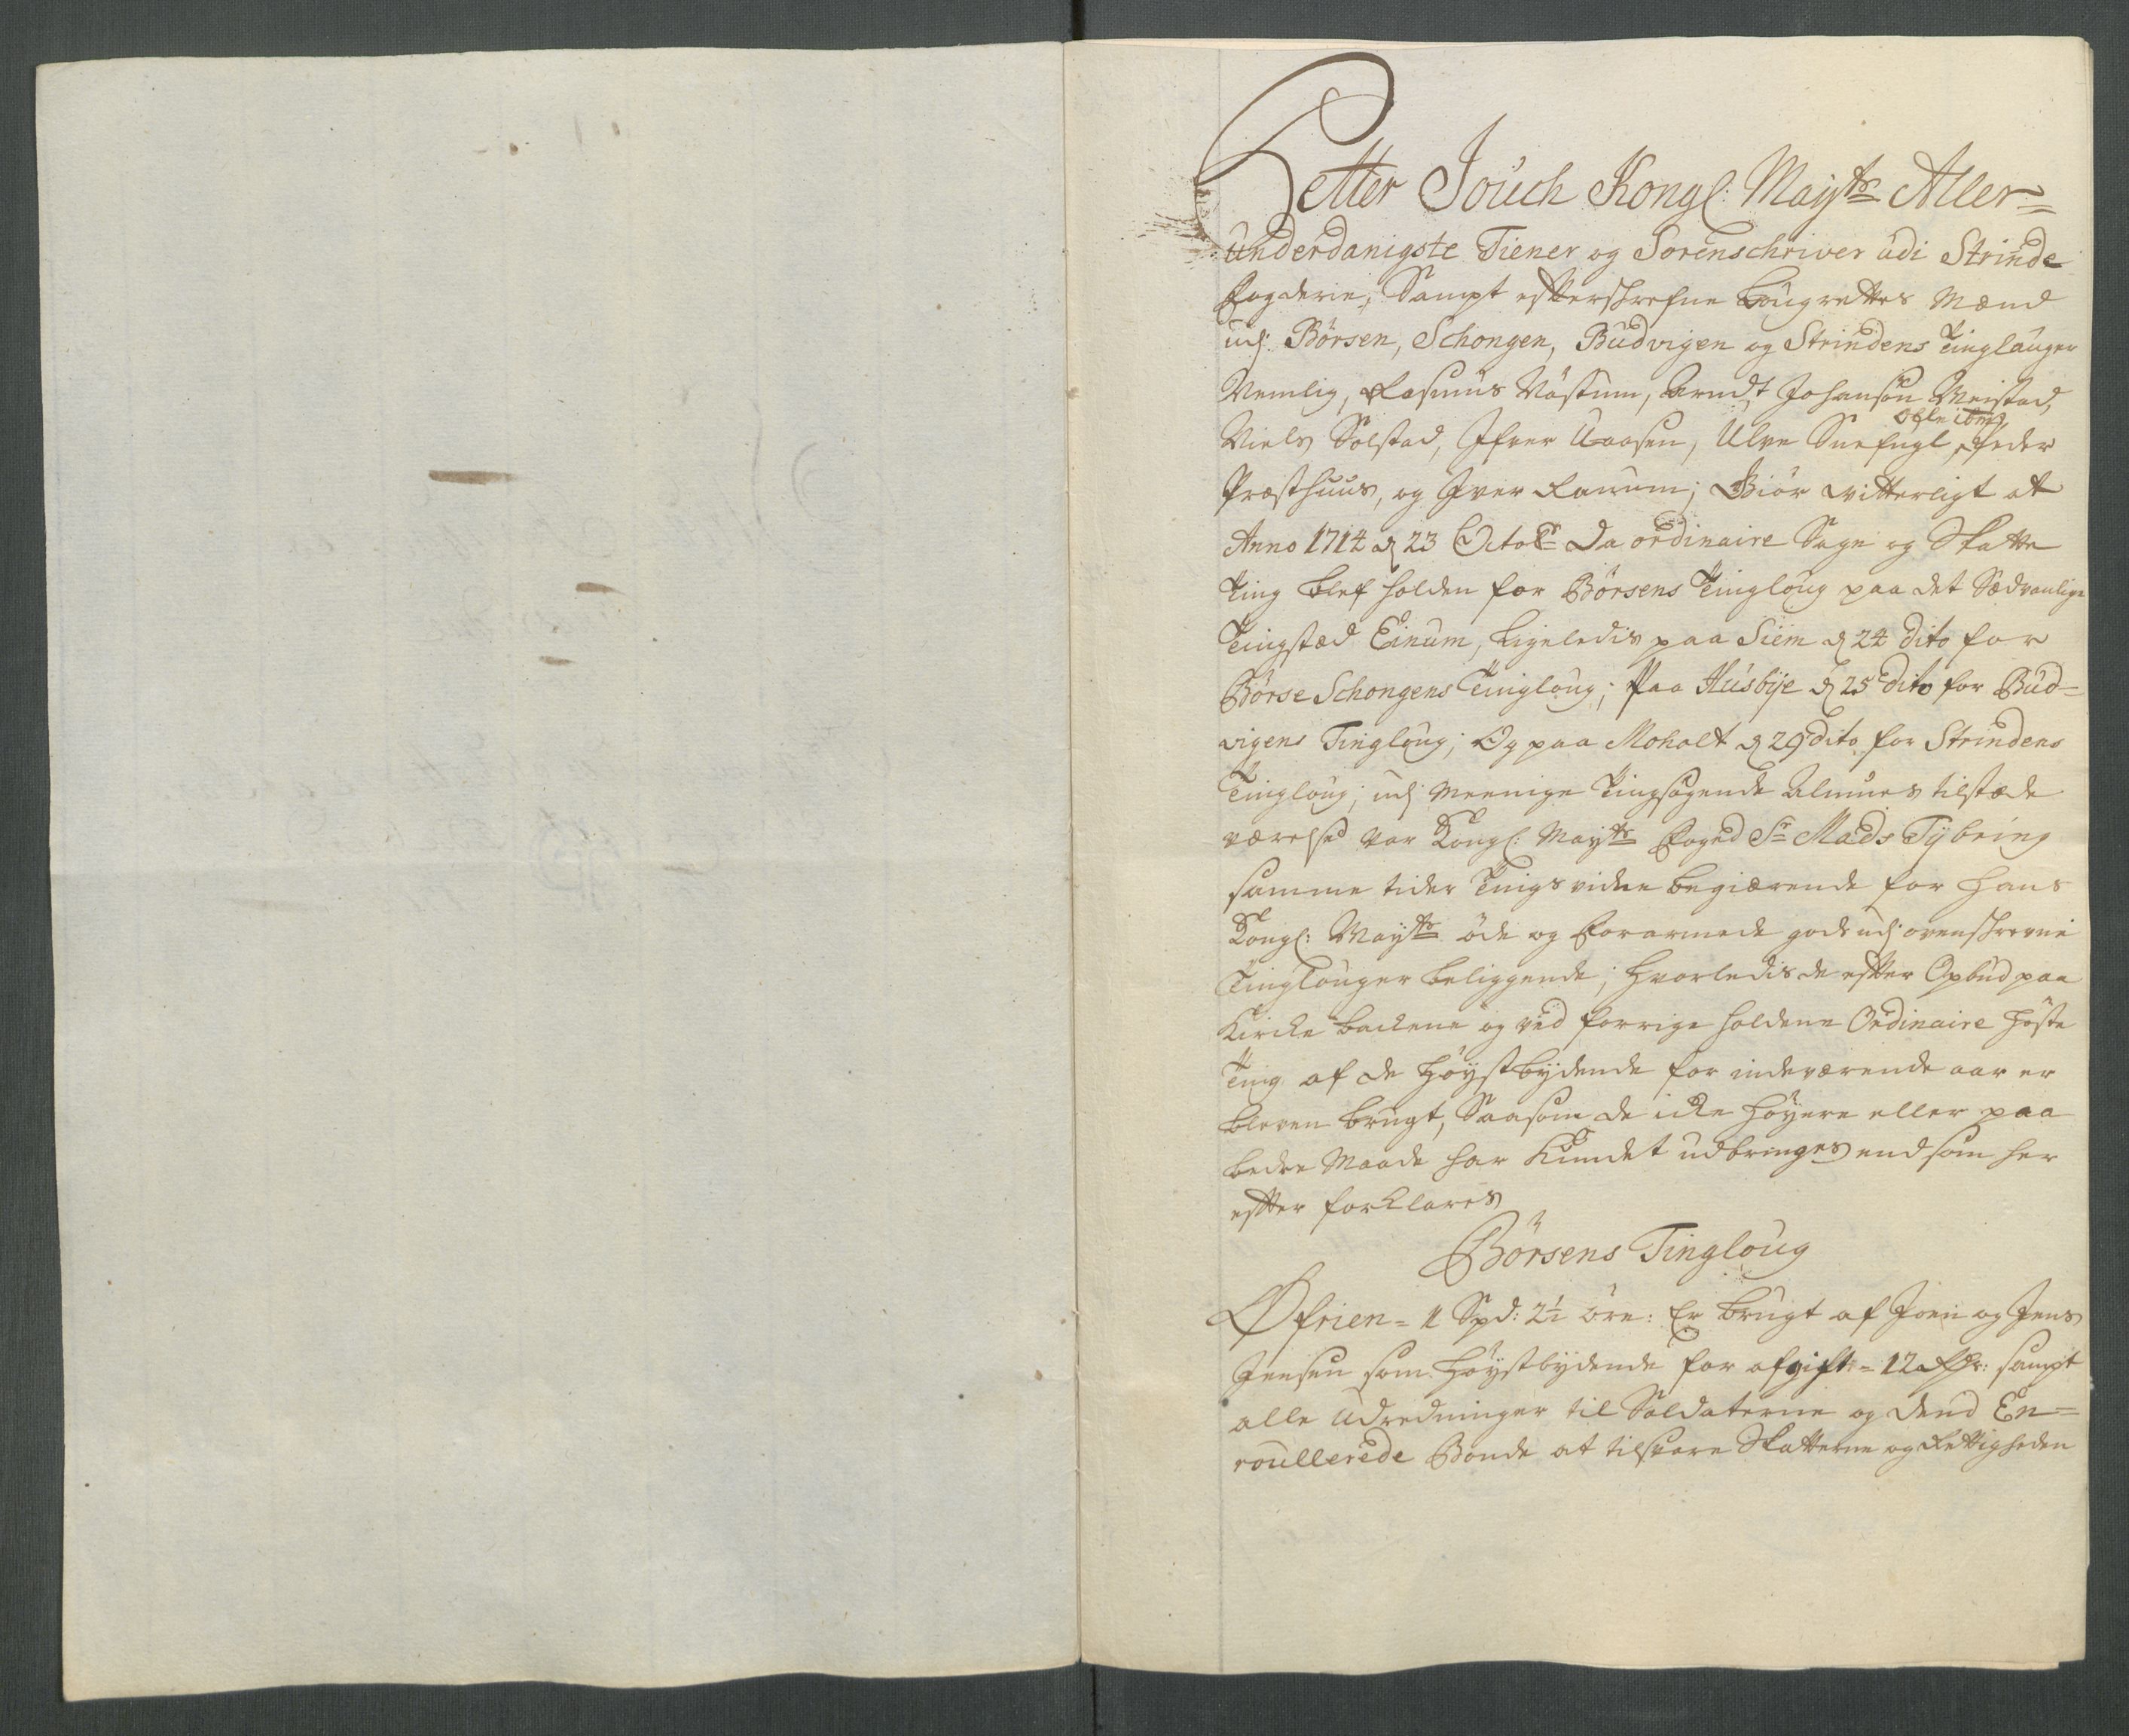 Petter Jouch Kongl: Mayts Aller=
underdanigste Tiener og Sorenschriver udi Strinde
Fogderie, Sampt efterschrefne Lougrettes Mænd
udj Börsen, Schongen, Budvigen og Strindens Tinglauger
Nemlig, Rasmus Wöstum, Arendt Johansön Meistad,
Niels Solstad, Ifver Uaasen, Ulve Snefugl, Peder
Præsthuus, og Iver Ranum; Giör witterligt at
Anno 1714 d 23 Octobr Da ordinaire Sage og Skatte
Ting blef holden for Börsens Tingloug paa det Sædvanlige
Tingstæd Einum, Ligeledis paa Siem d 24 dito for
Börse Schongens Tingloug; Paa Husbije d 25 dito for Bud=
vigens Tingloug; Og paa Moholt d 29 dito for Strindens
Tingloug; udj Meenige Tingsögende Almues tilstæde
værelse var Kongl: Mayts Foged Sr Mads Tybring
samme tider Tings vidne begiærende for Hans
Kongl: Mayts öde og Forarmede gods udj ovenschrevne
Tinglouger beliggende; hvorledis de efter Opbud paa
Kircke backene og ved forrige holdene Ordinaire höste
Ting af de Höystbydende for indeværende aar er
bleven brugt, Saasom de icke höyere eller paa
bedre Maade har Kundet udbringes end som her
efter forklares
Börsens Tingloug
Öfrien = 1 Spd: 2½ öre: Er brugt af Joen og Jens
Jensen som Höystbydende for afgift = 12 rdr: sampt
alle Udredninger til Soldaterne og dend En=
roullerede Bonde at tilsvare Skatterne og Rettigheden